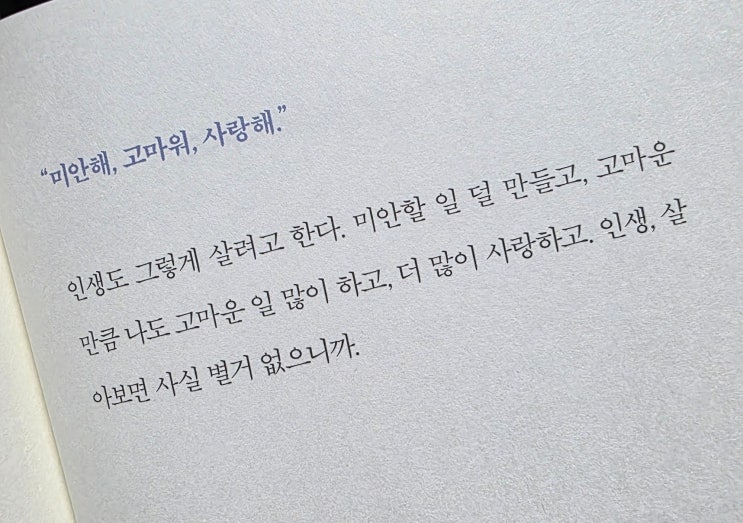 “미안해, 고마워, 사랑해.”
인생도 그렇게 살려고 한다. 미안할 일 덜 만들고, 고마운
만큼 나도 고마운 일 많이 하고, 더 많이 사랑하고. 인생, 살
아보면 사실 별거 없으니까.